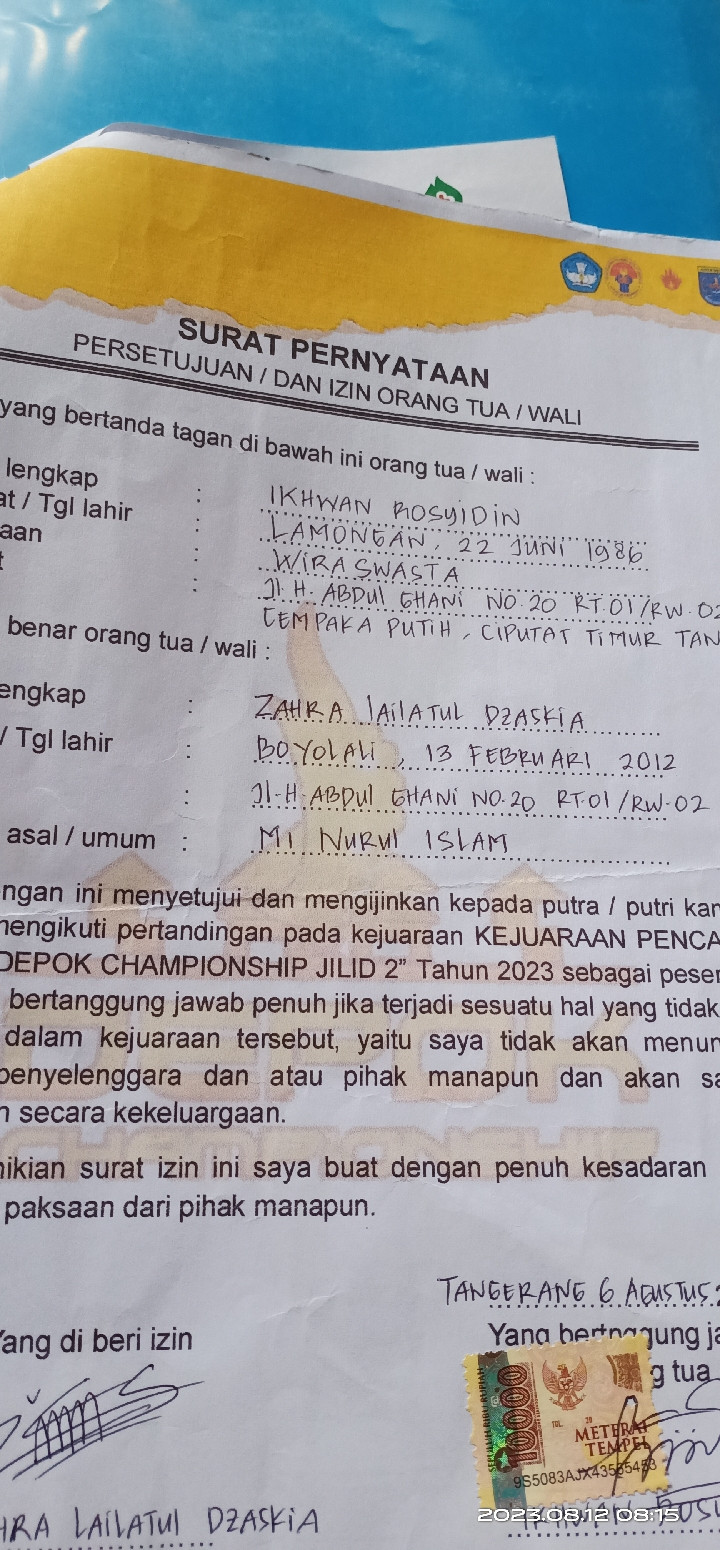 SURAT PERNYATAAN
PERSETUJUAN / DAN IZIN ORANG TUA / WALI
yang bertanda tagan di bawah ini orang tua / wali :
lengkap : IKHWAN ROSYIDIN
at / Tgl lahir : LAMONGAN, 22 JUNI 1986
aan : WIRASWASTA
: Jl. H. ABDUL GHANI NO.20 RT.01/RW.02
CEMPAKA PUTIH, CIPUTAT TIMUR TAN
benar orang tua / wali :
engkap : ZAHRA LAILATUL DZASKIA
/ Tgl lahir : BOYOLALI, 13 FEBRUARI 2012
: Jl-H. ABDUL GHANI NO.20 RT.01/RW.02
asal / umum : MI NURUL ISLAM
ngan ini menyetujui dan mengijinkan kepada putra / putri kam
mengikuti pertandingan pada kejuaraan KEJUARAAN PENCA
DEPOK CHAMPIONSHIP JILID 2” Tahun 2023 sebagai peser
bertanggung jawab penuh jika terjadi sesuatu hal yang tidak
dalam kejuaraan tersebut, yaitu saya tidak akan menun
penyelenggara dan atau pihak manapun dan akan sa
n secara kekeluargaan.
nikian surat izin ini saya buat dengan penuh kesadaran
paksaan dari pihak manapun.
TANGERANG 6 AGUSTUS
Yang di beri izin
Yang bertnggung ja
g tua
10000
TGL. 20
METERAI
TEMPEL
HRA LAILATUL DZASKIA
2023.08.12 08:15